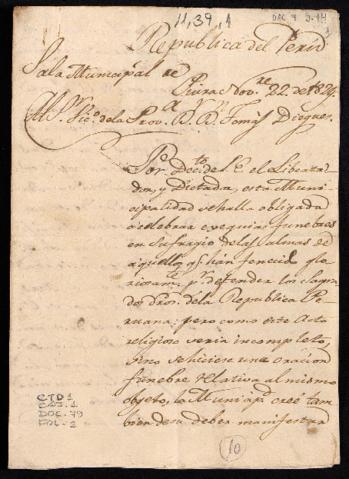 11,39,1
Republica del Perú
Sala Municipal de
Piura Nov.re 22 de 1824.
Al Sr. Vic.o de la Prov.a D. D. Tomas Dieguez.
Por Dec.to de S. E. el Liberta-
dor, y Dictador, esta Muni-
cipalidad se halla obligada
a celebrar exequias funebres
en sufragio de las almas de
aquellos q.e han fenecido glo-
riosam.te p.r defender los sagra-
dos dros. de la Republica Pe-
ruana: pero como este Acto
religioso seria incompleto,
si no se hiciese una oracion
fúnebre relativa al mismo
objeto, la Municip.d creé tam-
bien de su deber manifestar
CTD1
DOC. 79
FOL. 2
10